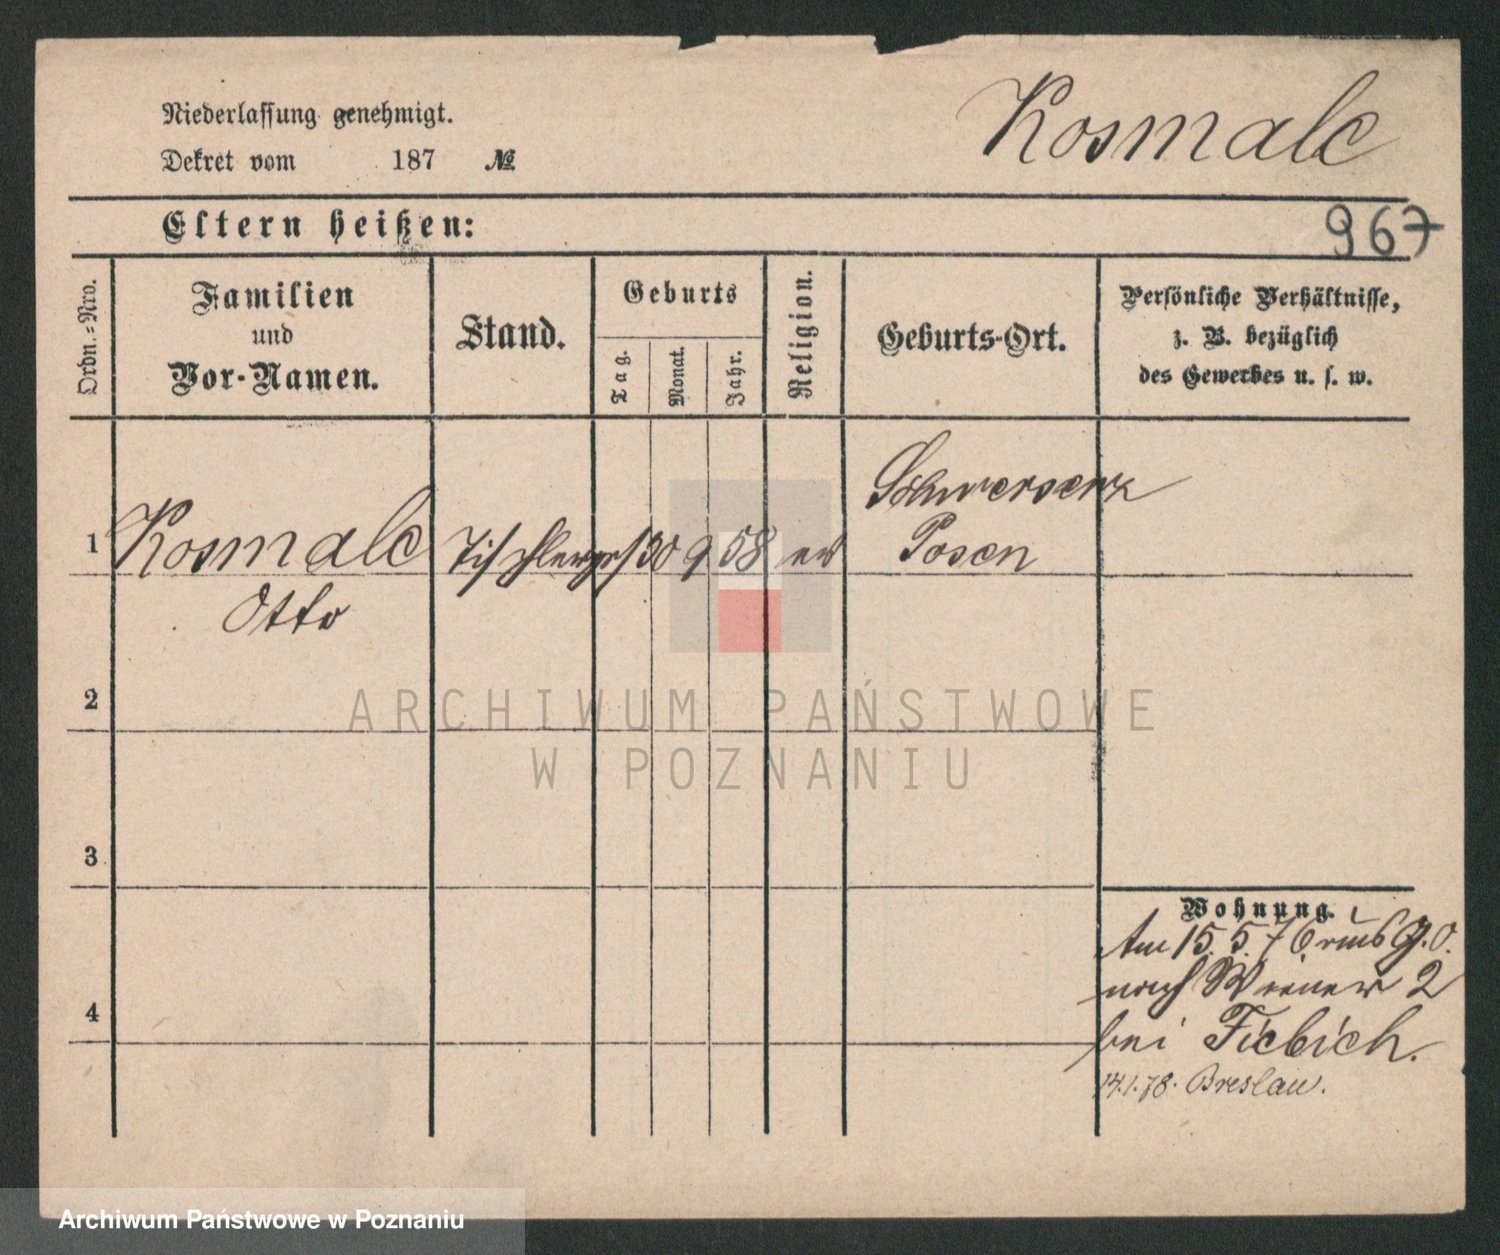 Niederlassung genehmigt.
Dekret vom 187 №
Kosmale
Eltern heißen:
967
Ordn.-Nro.
Familien
und
Vor-Namen.
Stand.
Geburts
Tag.
Monat.
Jahr.
Religion.
Geburts-Ort.
Persönliche Verhältnisse,
z. B. bezüglich
des Gewerbes u. s. w.
1 Kosmale Tischlerges 30 9 58 ev Schwersenz
Posen
Otto
2
ARCHIWUM PAŃSTWOWE
W POZNANIU
3
Wohnung.
Am 15. 5. 76 G. O.
nach Wiener 2
4
bei Fiebich.
14.1.78. Breslau.
Archiwum Państwowe w Poznaniu